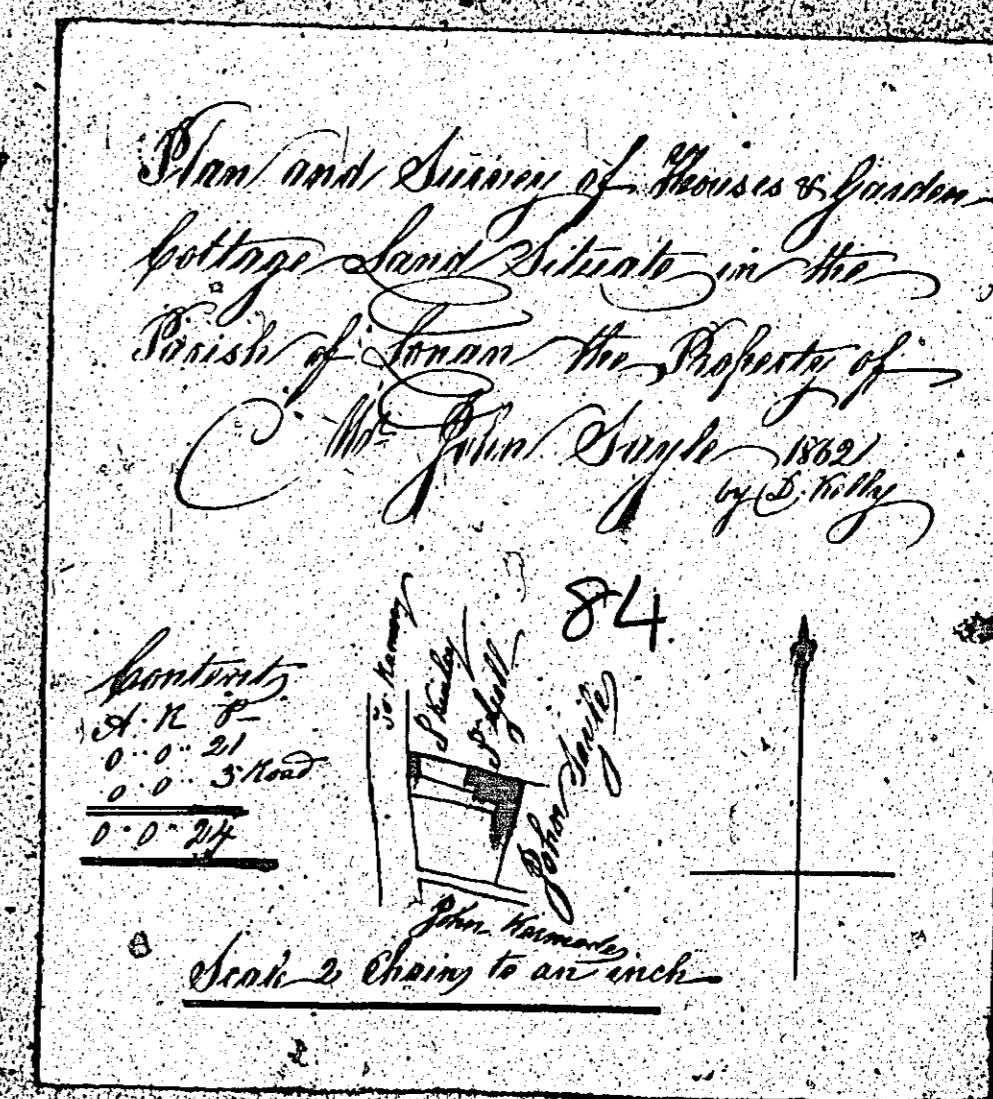 Plan and Survey of Houses & Garden
Cottage Land Situate in the
Parish of Lonan the Property of
Mr. John Sayle 1862
by D. Kelly
84.
Content
A. R P
0 .. 0 .. 21
0 .. 0 .. 3 Road
0 .. 0 .. 24
To Ramsey
John
John
Scale 2 Chains to an inch